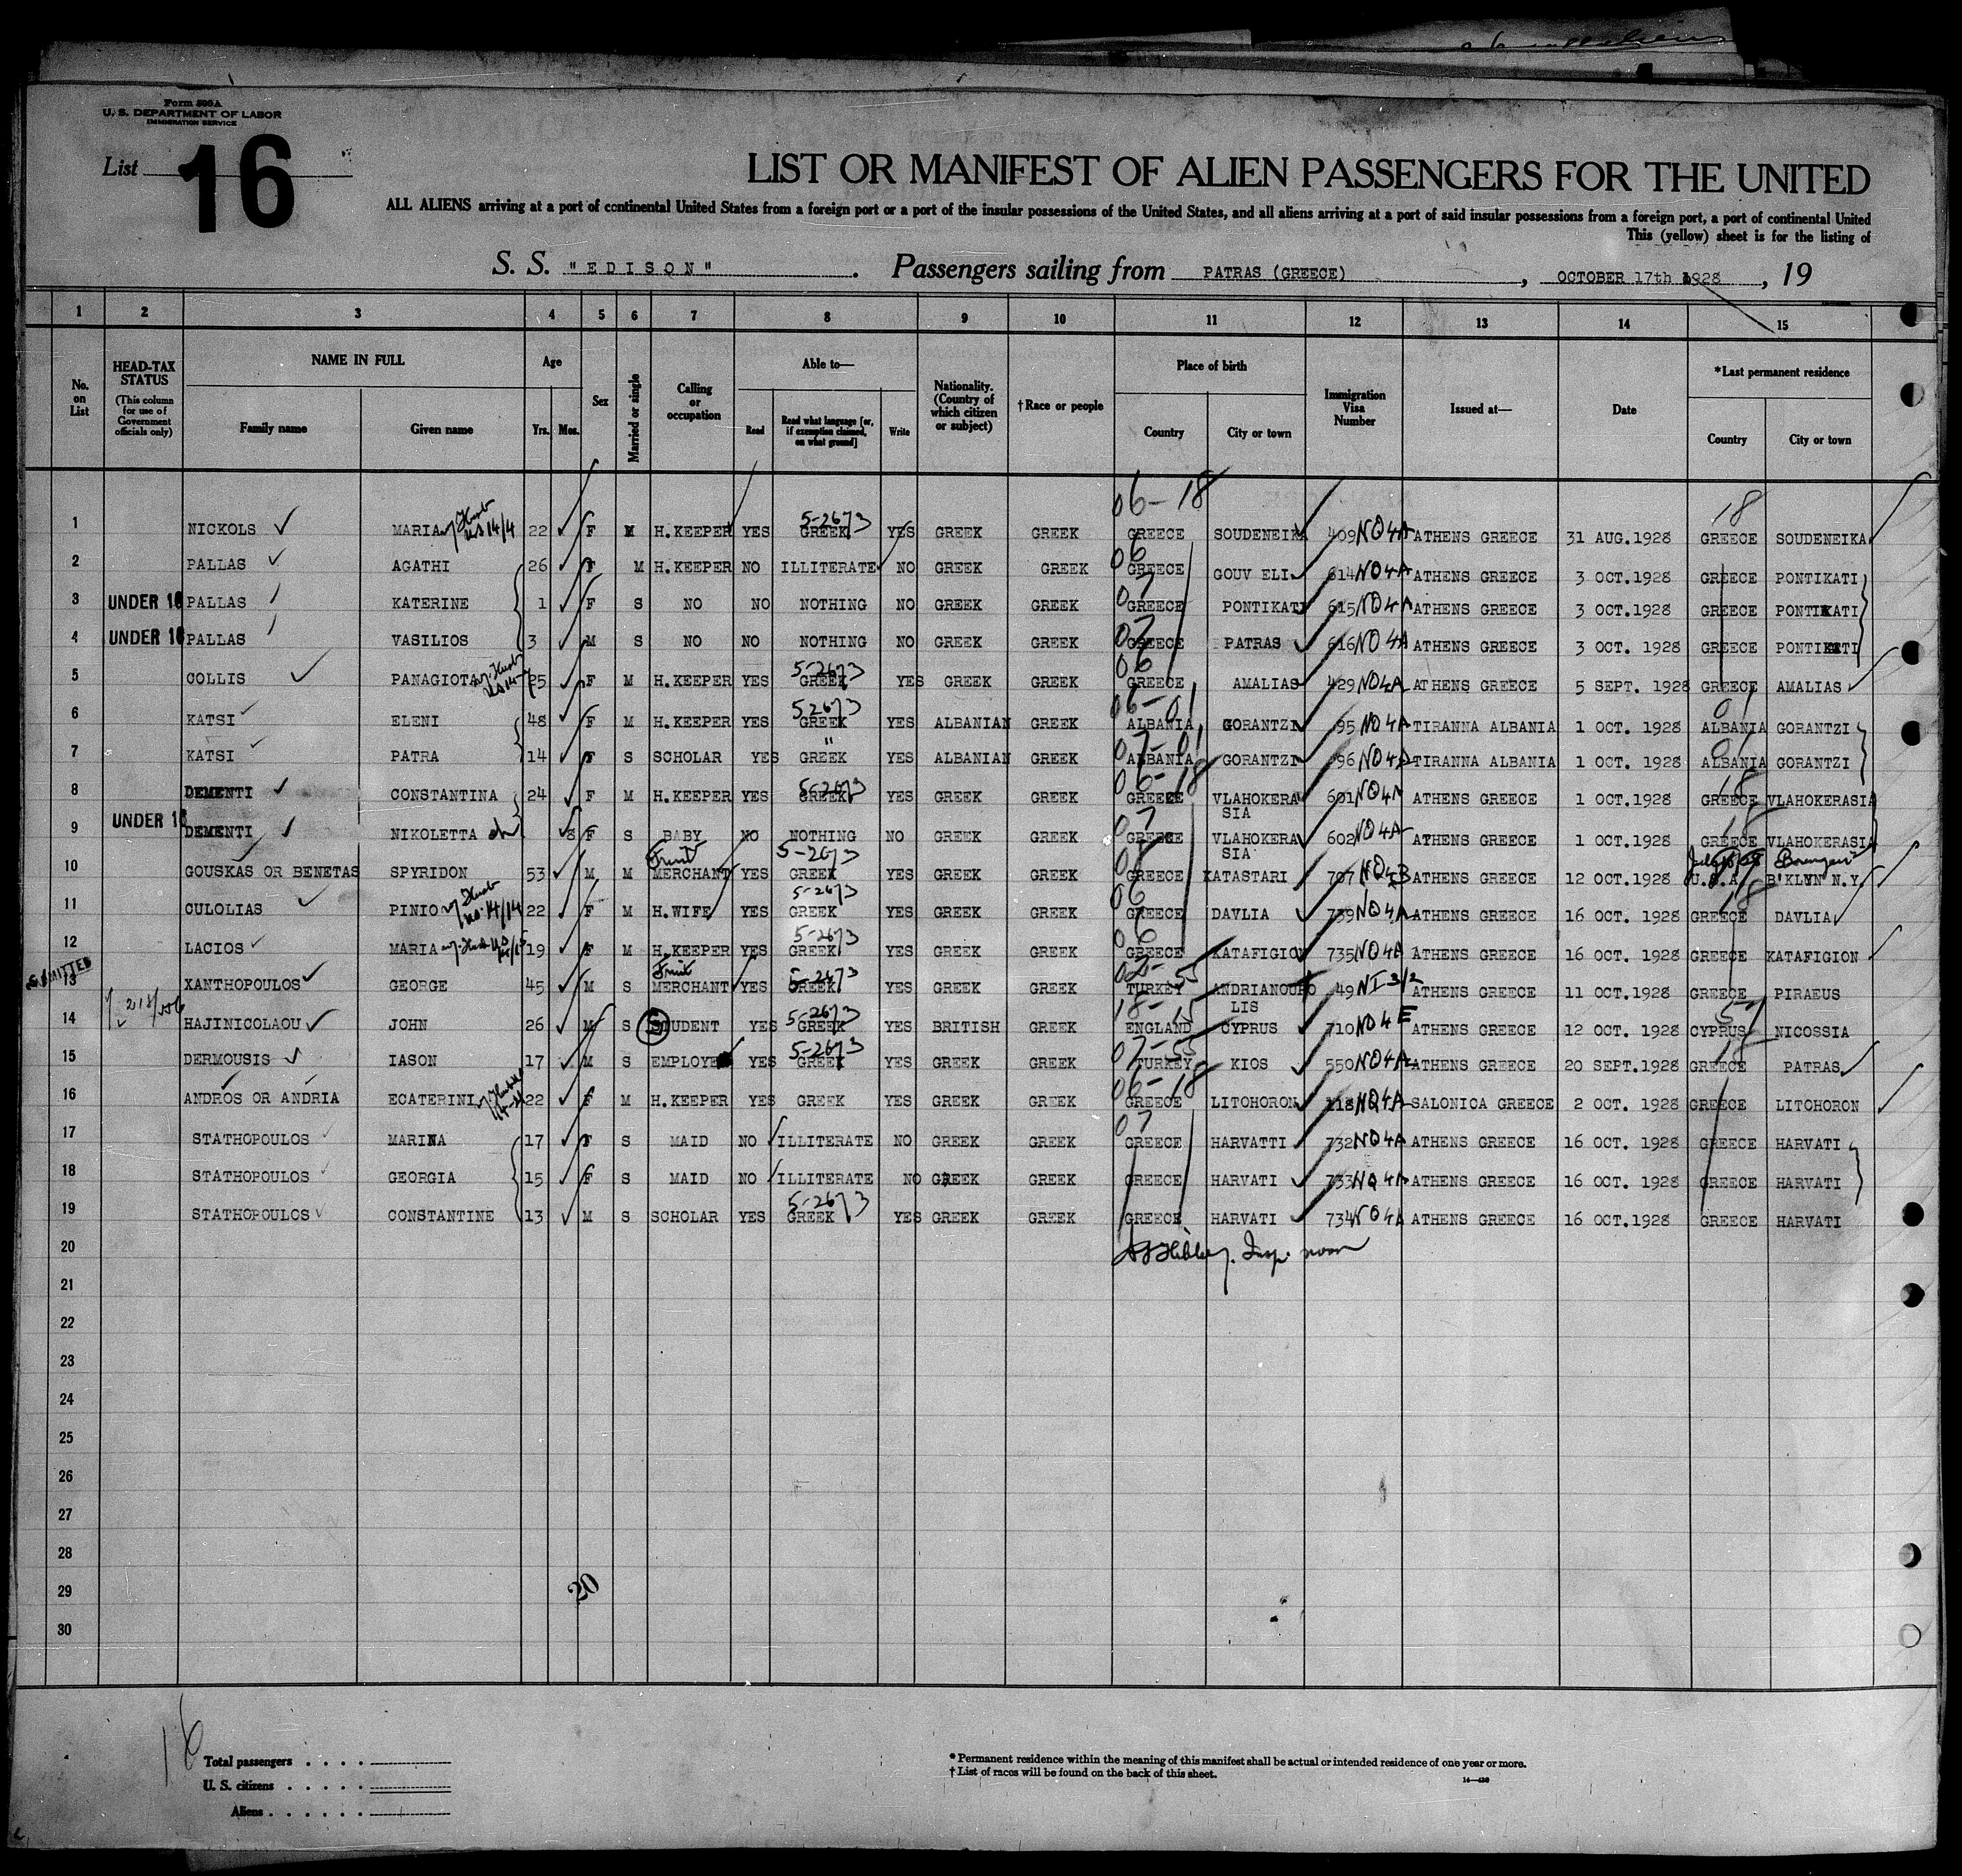 Form 500 A
U. S. DEPARTMENT OF LABOR
IMMIGRATION SERVICE
List 16
LIST OR MANIFEST OF ALIEN PASSENGERS FOR THE UNITED
ALL ALIENS arriving at a port of continental United States from a foreign port or a port of the insular possessions of the United States, and all aliens arriving at a port of said insular possessions from a foreign port, a port of continental United
This (yellow) sheet is for the listing of
S. S. "EDISON". Passengers sailing from PATRAS (GREECE), OCTOBER 17th 1928, 19
1 2 3 4 5 6 7 8 9 10 11 12 13 14 15
No. on List
HEAD-TAX STATUS (This column for use of Government officials only)
NAME IN FULL
Family name Given name
Age Yrs. Mos.
Sex
Married or single
Calling or occupation
Able to—
Read Read what language [or, if exemption claimed, on what ground] Write
Nationality. (Country of which citizen or subject)
†Race or people
Place of birth
Country City or town
Immigration Visa Number
Issued at—
Date
*Last permanent residence
Country City or town
1 NICKOLS MARIA 22 F M H.KEEPER YES 5-2673 GREEK YES GREEK GREEK 06-18 GREECE SOUDENEIKA 409 NQ4A ATHENS GREECE 31 AUG.1928 18 GREECE SOUDENEIKA
2 PALLAS AGATHI 26 F M H.KEEPER NO ILLITERATE NO GREEK GREEK 06 GREECE GOUV ELI 614 NQ4A ATHENS GREECE 3 OCT.1928 GREECE PONTIKATI
3 UNDER 16 PALLAS KATERINE 1 F S NO NO NOTHING NO GREEK GREEK 07 GREECE PONTIKATI 615 NQ4A ATHENS GREECE 3 OCT.1928 GREECE PONTIKATI
4 UNDER 16 PALLAS VASILIOS 3 M S NO NO NOTHING NO GREEK GREEK 07 GREECE PATRAS 616 NQ4A ATHENS GREECE 3 OCT. 1928 GREECE PONTIKATI
5 COLLIS PANAGIOTA 25 F M H.KEEPER YES 5-2673 GREEK YES GREEK GREEK 06 GREECE AMALIAS 429 NQ4A ATHENS GREECE 5 SEPT. 1928 GREECE AMALIAS
6 KATSI ELENI 48 F M H.KEEPER YES 52673 GREEK YES ALBANIAN GREEK 06-01 ALBANIA GORANTZI 95 NQ4A TIRANNA ALBANIA 1 OCT. 1928 01 ALBANIA GORANTZI
7 KATSI PATRA 14 F S SCHOLAR YES " GREEK YES ALBANIAN GREEK 07-01 ALBANIA GORANTZI 96 NQ4A TIRANNA ALBANIA 1 OCT. 1928 01 ALBANIA GORANTZI
8 DEMENTI CONSTANTINA 24 F M H.KEEPER YES 5-2673 GREEK YES GREEK GREEK 06-18 GREECE VLAHOKERASIA 601 NQ4A ATHENS GREECE 1 OCT.1928 18 GREECE VLAHOKERASIA
9 UNDER 16 DEMENTI NIKOLETTA 8 F S BABY NO NOTHING NO GREEK GREEK 07 GREECE VLAHOKERASIA 602 NQ4A ATHENS GREECE 1 OCT.1928 18 GREECE VLAHOKERASIA
10 GOUSKAS OR BENETAS SPYRIDON 53 M M Fruit MERCHANT YES 5-2673 GREEK YES GREEK GREEK GREECE KATASTARI 707 ATHENS GREECE 12 OCT.1928 U.S.A. B'KLYN N.Y.
11 CULOLIAS PINIO 22 F M H.WIFE YES 5-2673 GREEK YES GREEK GREEK 06 GREECE DAVLIA 739 NQ4A ATHENS GREECE 16 OCT. 1928 18 GREECE DAVLIA
12 LACIOS MARIA 19 F M H.KEEPER YES 5-2673 GREEK YES GREEK GREEK 06 GREECE KATAFIGIO 735 NQ4A ATHENS GREECE 16 OCT. 1928 GREECE KATAFIGION
ADMITTED
13 XANTHOPOULOS GEORGE 45 M S Fruit MERCHANT YES 5-2673 GREEK YES GREEK GREEK TURKEY ANDRIANOUPOLIS 49 NI-3/2 ATHENS GREECE 11 OCT.1928 GREECE PIRAEUS
14 HAJINICOLAOU JOHN 26 M S STUDENT YES 5-2673 GREEK YES BRITISH GREEK 18-15 ENGLAND CYPRUS 710 NQ4E ATHENS GREECE 12 OCT. 1928 CYPRUS NICOSSIA
15 DERMOUSIS IASON 17 M S EMPLOYE YES 5-2673 GREEK YES GREEK GREEK 07-55 TURKEY KIOS 550 NQ4A ATHENS GREECE 20 SEPT.1928 18 GREECE PATRAS
16 ANDROS OR ANDRIA ECATERINI 22 F M H.KEEPER YES GREEK YES GREEK GREEK 06-18 GREECE LITOHORON 118 NQ4A SALONICA GREECE 2 OCT. 1928 GREECE LITOHORON
17 STATHOPOULOS MARINA 17 F S MAID NO ILLITERATE NO GREEK GREEK 07 GREECE HARVATTI 732 NQ4A ATHENS GREECE 16 OCT. 1928 GREECE HARVATI
18 STATHOPOULOS GEORGIA 15 F S MAID NO ILLITERATE NO GREEK GREEK GREECE HARVATI 733 NQ4A ATHENS GREECE 16 OCT. 1928 GREECE HARVATI
19 STATHOPOULOS CONSTANTINE 13 M S SCHOLAR YES 5-2673 GREEK YES GREEK GREEK GREECE HARVATI 734 NQ4A ATHENS GREECE 16 OCT.1928 GREECE HARVATI
20
21
22
23
24
25
26
27
28
29 20
30
16
Total passengers
U. S. citizens
Aliens
* Permanent residence within the meaning of this manifest shall be actual or intended residence of one year or more.
† List of races will be found on the back of this sheet.
14—430